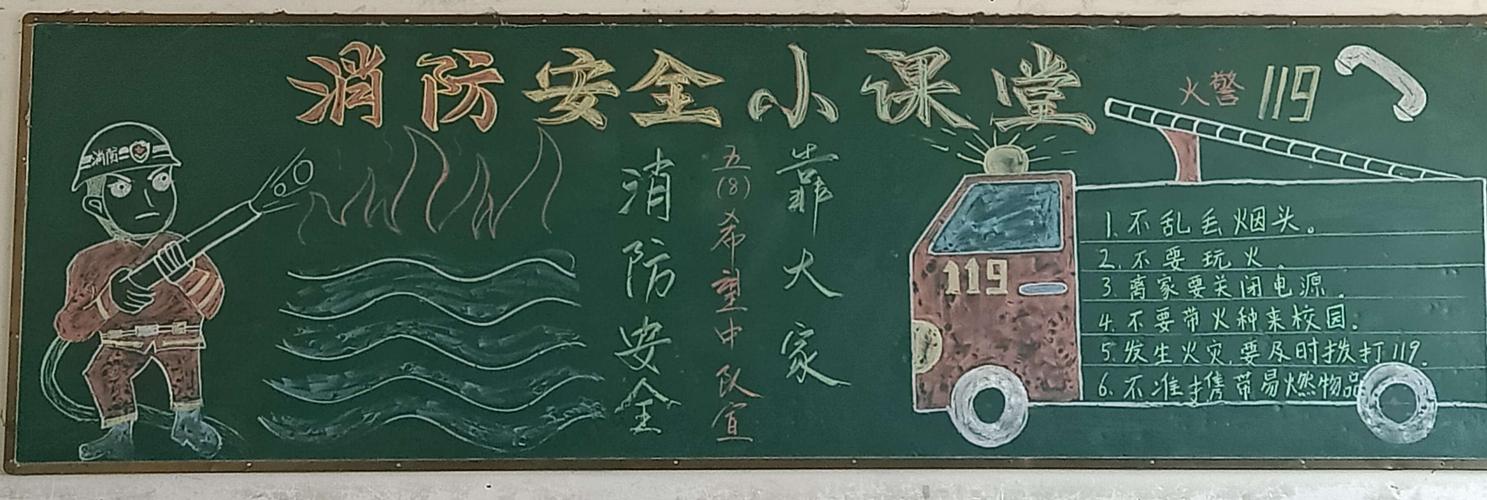 消防安全小课堂
火警 119
消防
消防安全
五(8)希望中队宣
靠大家
119
1. 不乱丢烟头。
2. 不要玩火。
3. 离家要关闭电源.
4. 不要带火种来校园.
5. 发生火灾.要及时拨打119.
6. 不准携带易燃物品